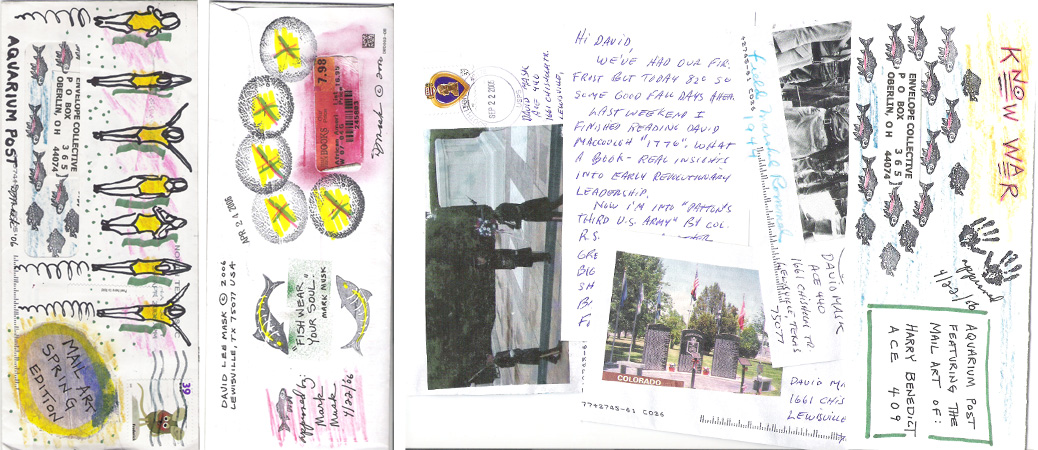 AQUARIUM POST
ENVELOPE COLLECTIVE
P O BOX
3 6 5
OBERLIN, OH
44074
MAIL ART
SPRING
EDITION
39
7.98
APR 24 2006
DAVID LEE MASK © 2006
LEWISVILLE, TX 75077 USA
"FISH WEAR
YOUR SOUL"
MARK MUSK
approved by:
Mark
Musk
4/22/06
SEP 22 2006
DAVID MASK
ACE 440
1661 CHISHOLM TR.
LEWISVILLE,
HI DAVID,
WE'VE HAD OUR FIR.
FROST BUT TODAY 82° SO
SOME GOOD FALL DAYS AHEA.
LAST WEEKEND I
FINISHED READING DAVID
MACCOUGH "1776". WHAT
A BOOK - REAL INSIGHTS
INTO EARLY REVOLUTIONARY
LEADERSHIP.
NOW I'M INTO "PATTON'S
THIRD U.S. ARMY" BY COL.
R.S.
GRE
BIG
SH
COLORADO
7742745-61 C026
DAVID MASK
ACE 440
1661 CHISHOLM TR
LEWISVILLE TEXAS
75077
DAVID MA
1661 CHIS
LEWISVILLE
KNOW WAR
ENVELOPE COLLECTIVE
P O BOX
3 6 5
OBERLIN, OH
44074
approved
4/22/06
AQUARIUM POST
FEATURING THE
MAIL ART OF:
HARRY BENEDICT
ACE
409